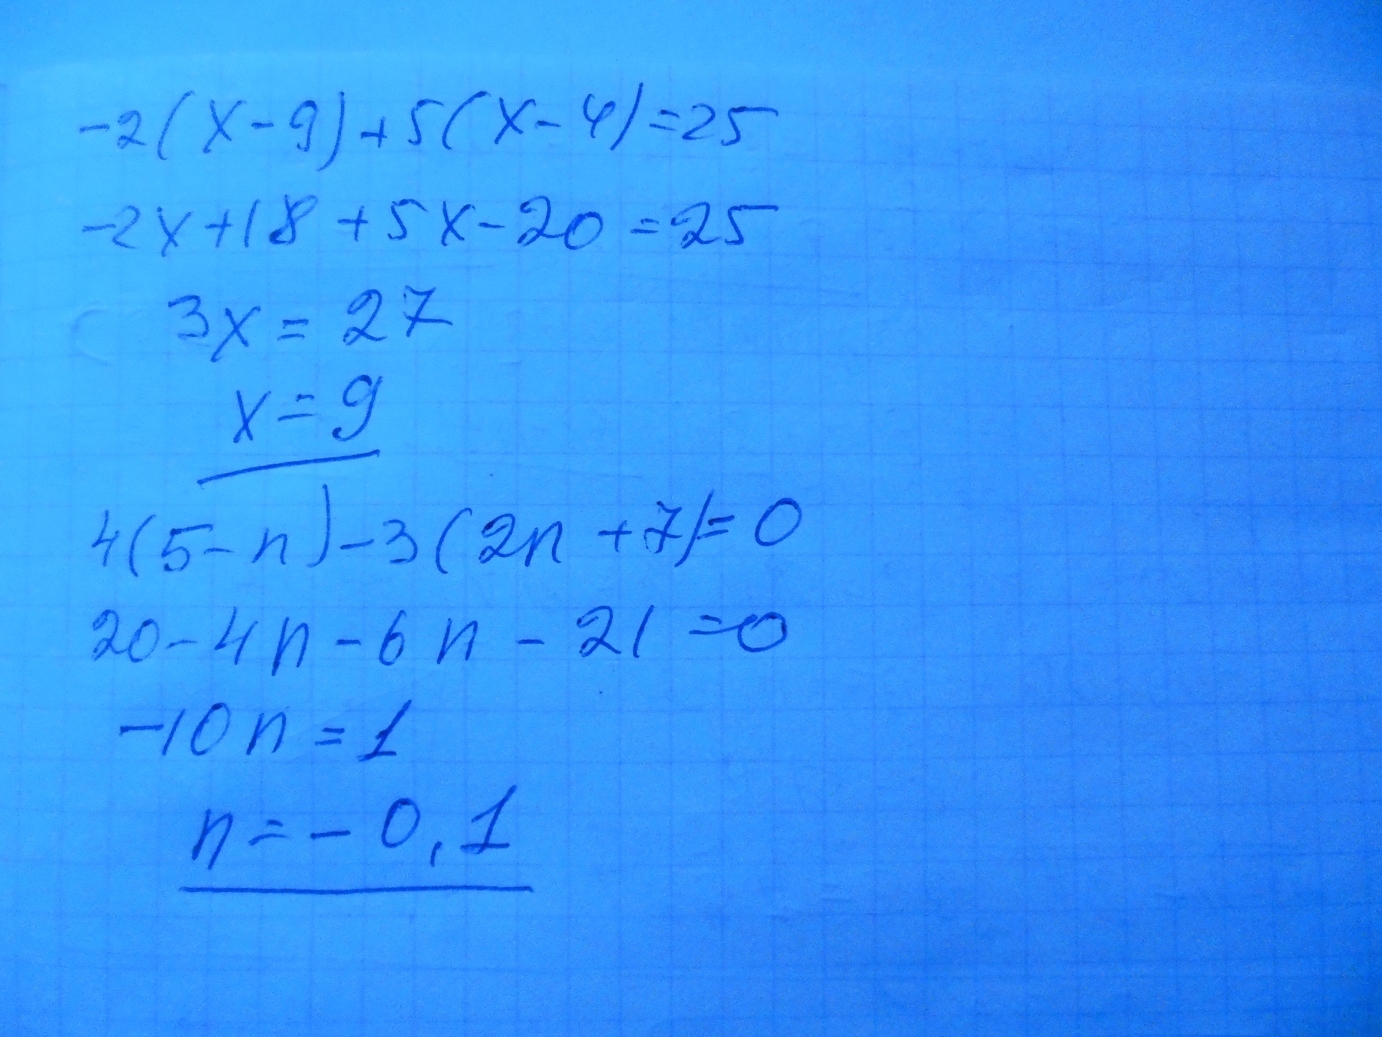 -2(x-9)+5(x-4)=25
-2x+18+5x-20=25
3x=27
x=9
4(5-n)-3(2n+7)=0
20-4n-6n-21=0
-10n=1
n=-0,1